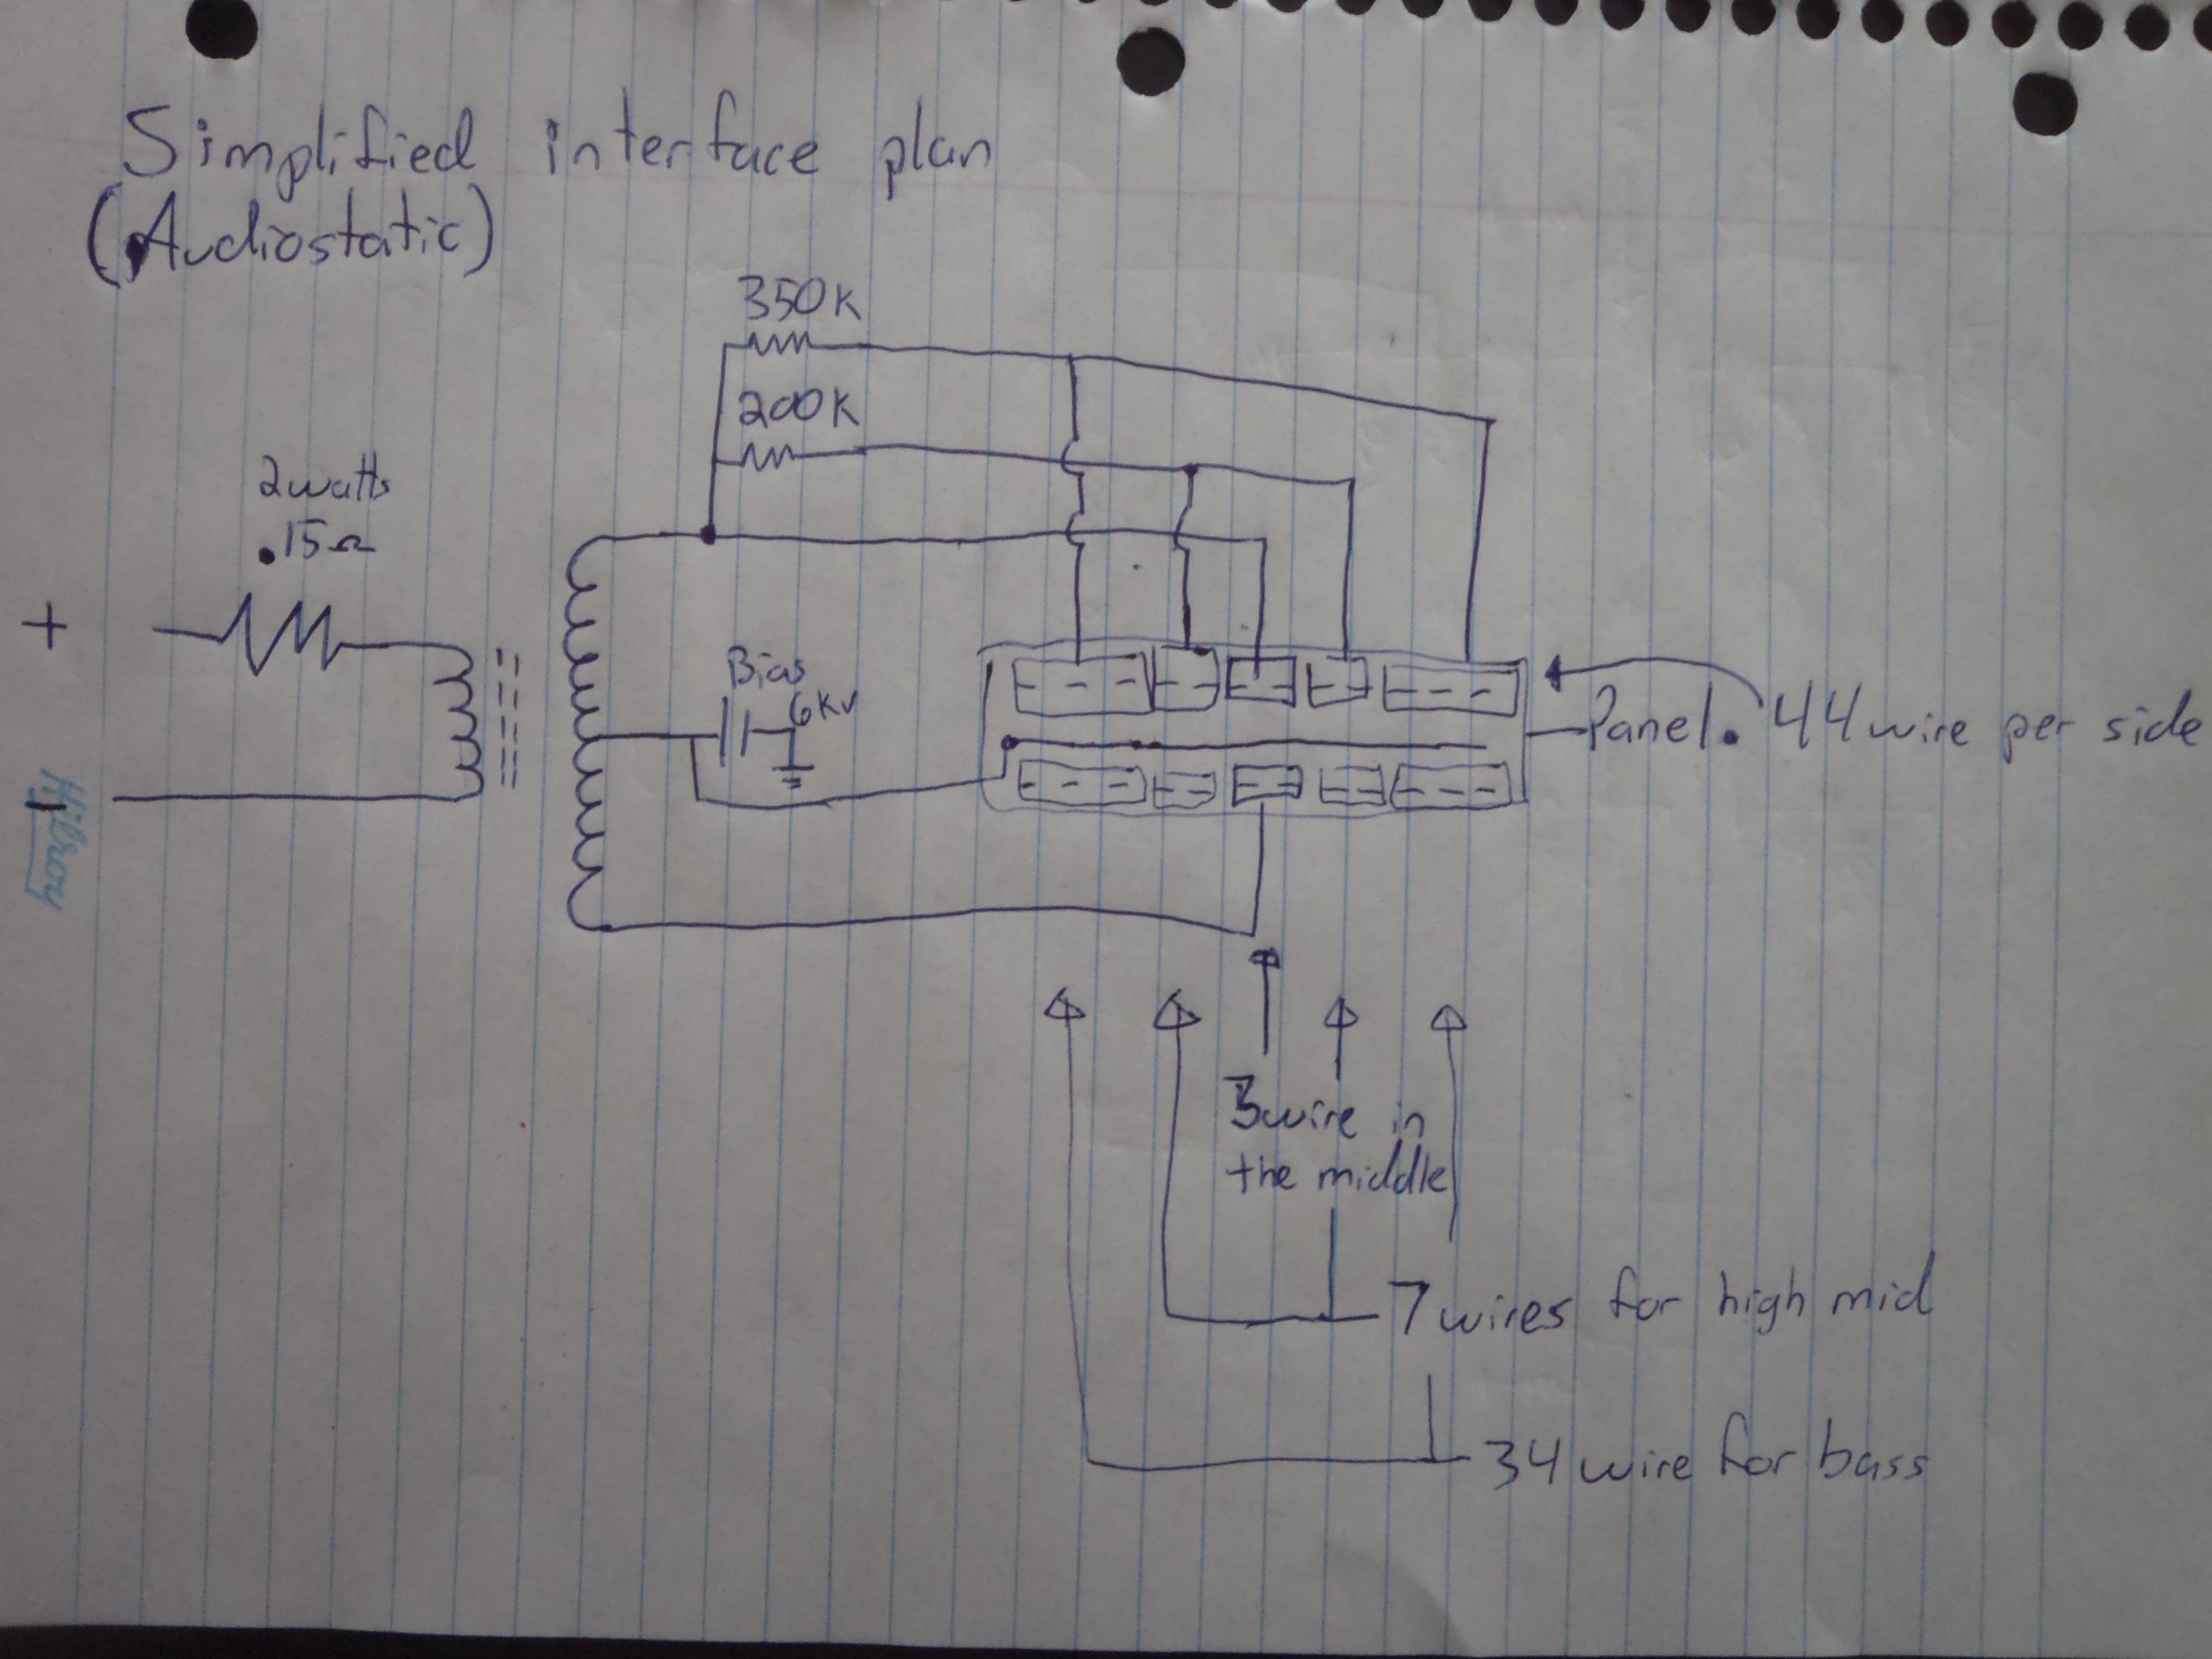 Simplified interface plan
(Audiostatic)
350K
200K
2watts
.15Ω
+
-
Bias
6Kv
Panel. 44 wire per side
3wire in
the middle
7 wires for high mid
34 wire for bass
Hilroy